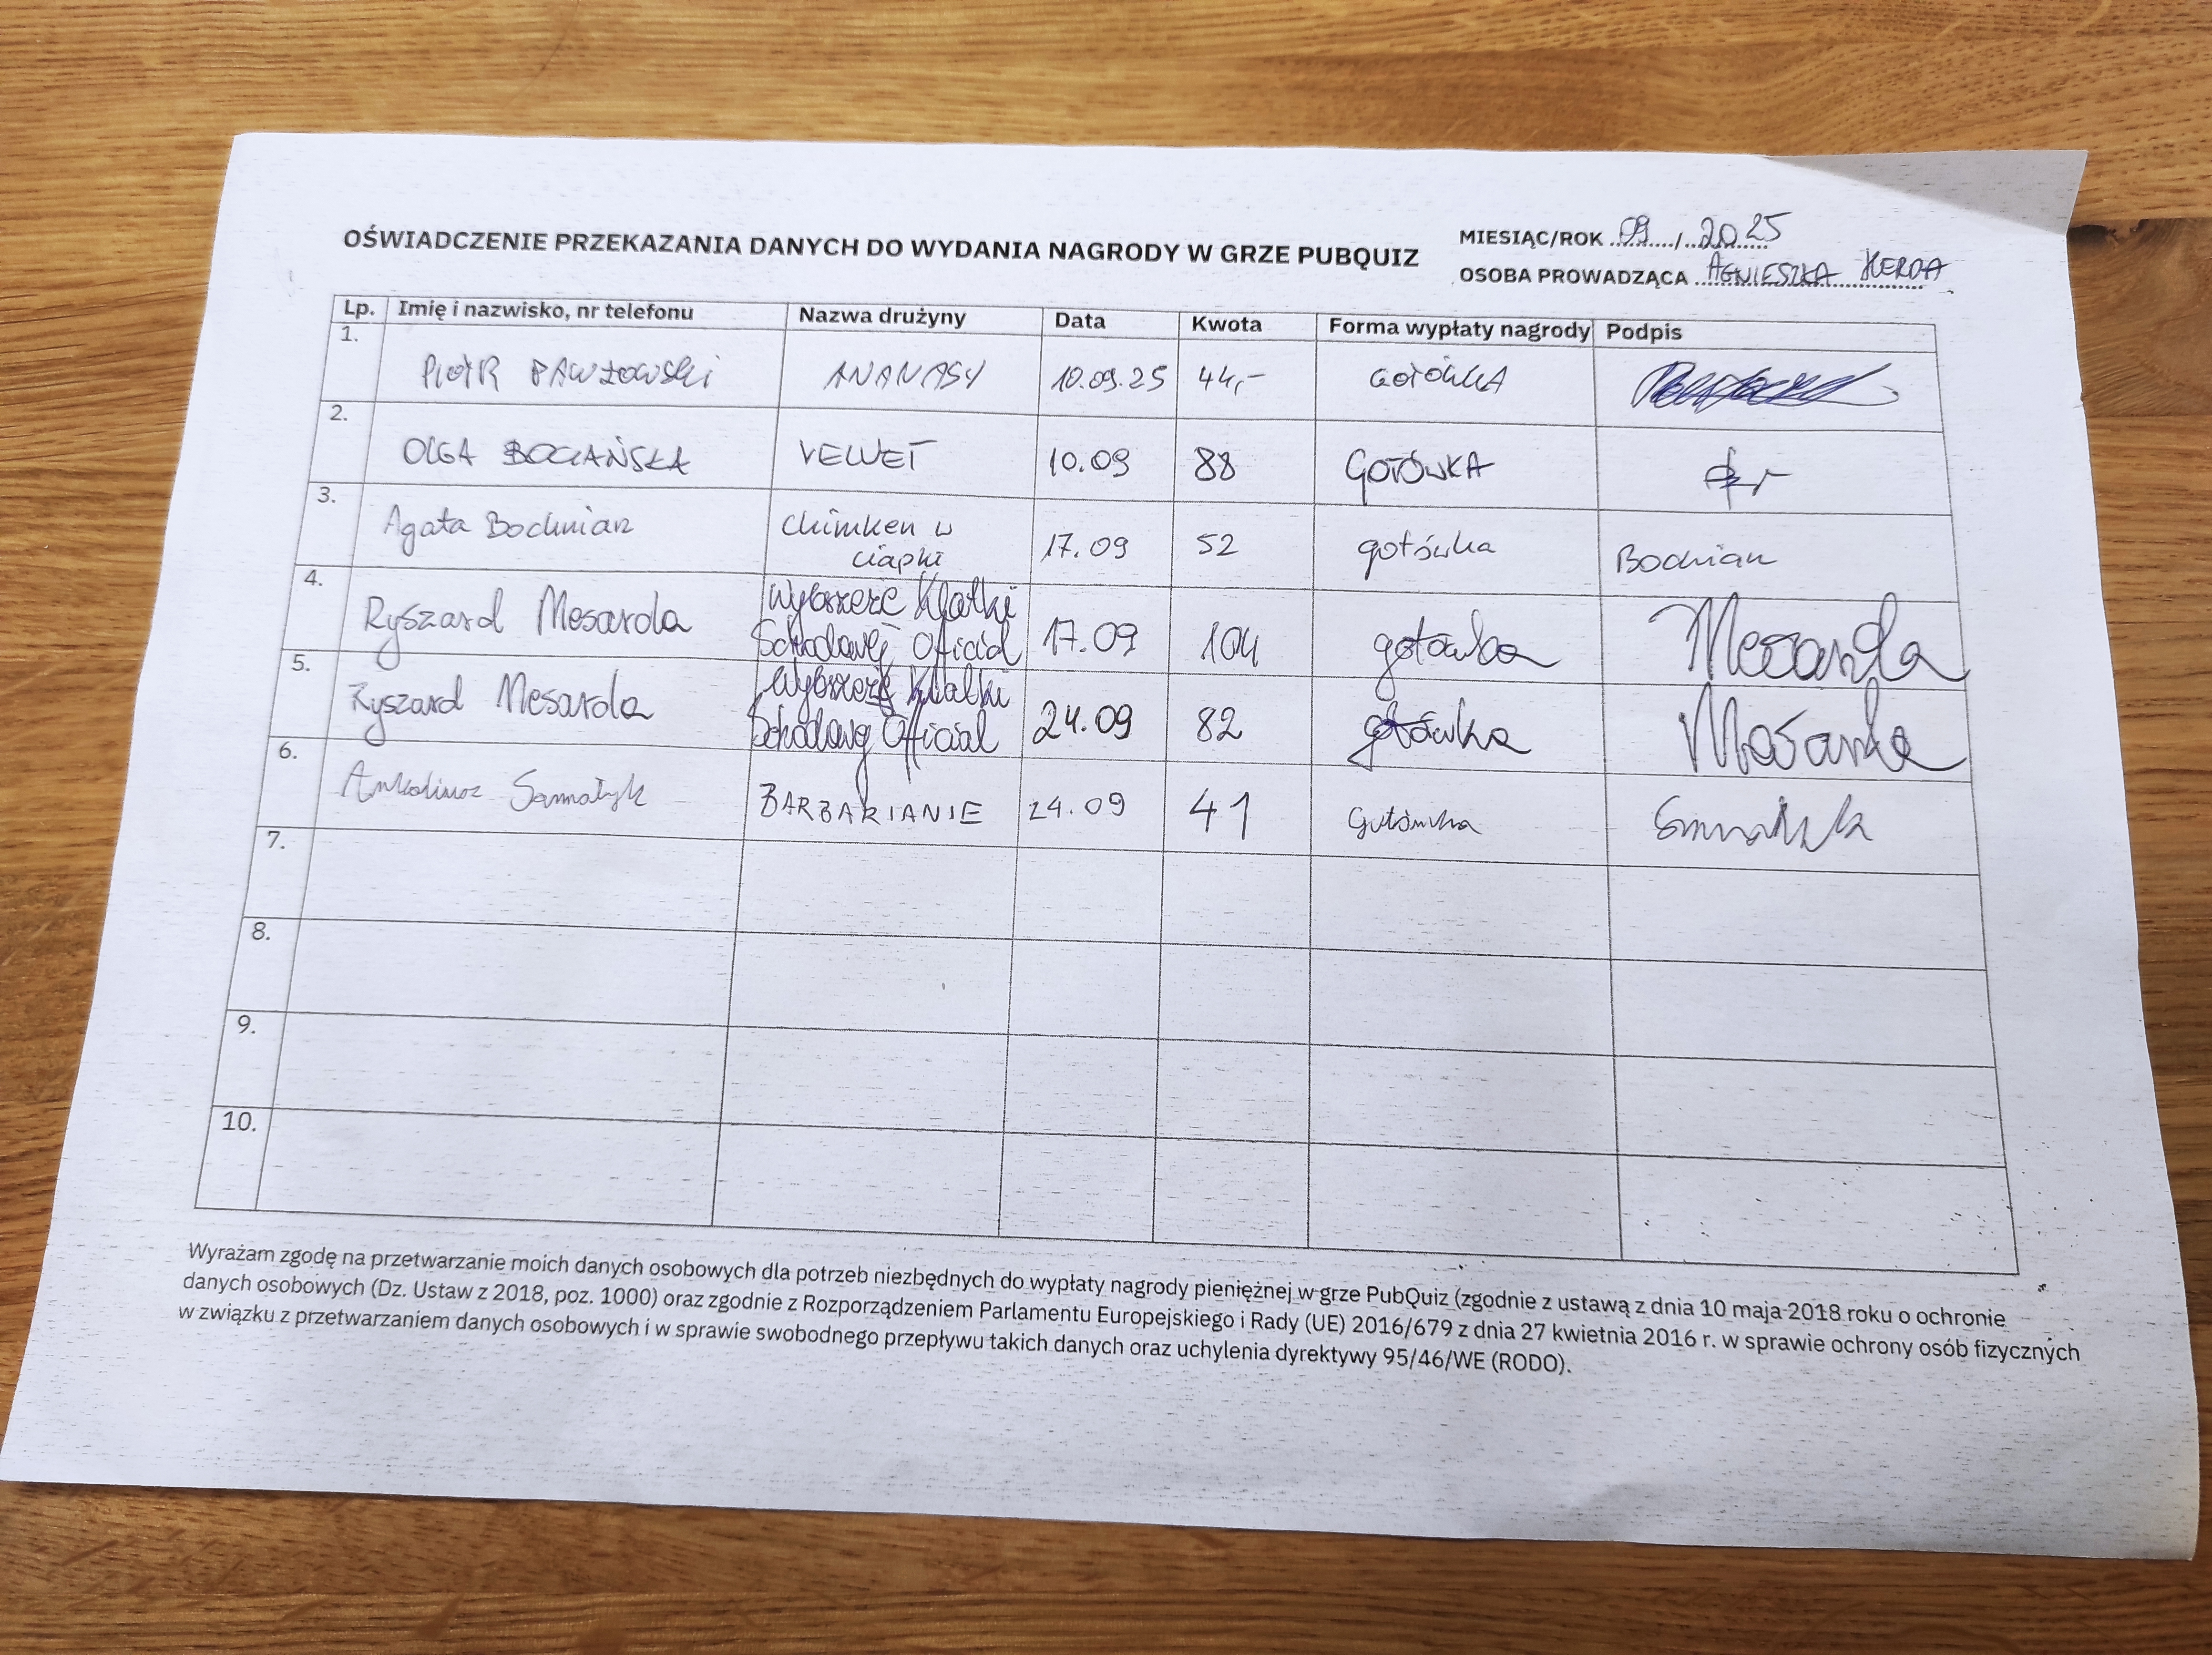 OŚWIADCZENIE PRZEKAZANIA DANYCH DO WYDANIA NAGRODY W GRZE PUBQUIZ
MIESIĄC/ROK 09/2025
OSOBA PROWADZĄCA AGNIESZKA HERDA
Lp. Imię i nazwisko, nr telefonu Nazwa drużyny Data Kwota Forma wypłaty nagrody Podpis
1. PIOTR PAWŁOWSKI ANANASY 10.09.25 44,- GOTÓWKA
2. OLGA BOCIAŃSKA VELVET 10.09 88 GOTÓWKA
3. Agata Bochnian Chimken w ciapki 17.09 52 gotówka Bochnian
4. Ryszard Mesarda Wybrzeże Klatki Schodowej Oficial 17.09 104 gotówka Mesarda
5. Ryszard Mesarda Wybrzeże Klatki Schodowej Oficial 24.09 82 gotówka
6. BARBARIANIE 24.09 41 gotówka
7.
8.
9.
10.
Wyrażam zgodę na przetwarzanie moich danych osobowych dla potrzeb niezbędnych do wypłaty nagrody pieniężnej w grze PubQuiz (zgodnie z ustawą z dnia 10 maja 2018 roku o ochronie
danych osobowych (Dz. Ustaw z 2018, poz. 1000) oraz zgodnie z Rozporządzeniem Parlamentu Europejskiego i Rady (UE) 2016/679 z dnia 27 kwietnia 2016 r. w sprawie ochrony osób fizycznych
w związku z przetwarzaniem danych osobowych i w sprawie swobodnego przepływu takich danych oraz uchylenia dyrektywy 95/46/WE (RODO).